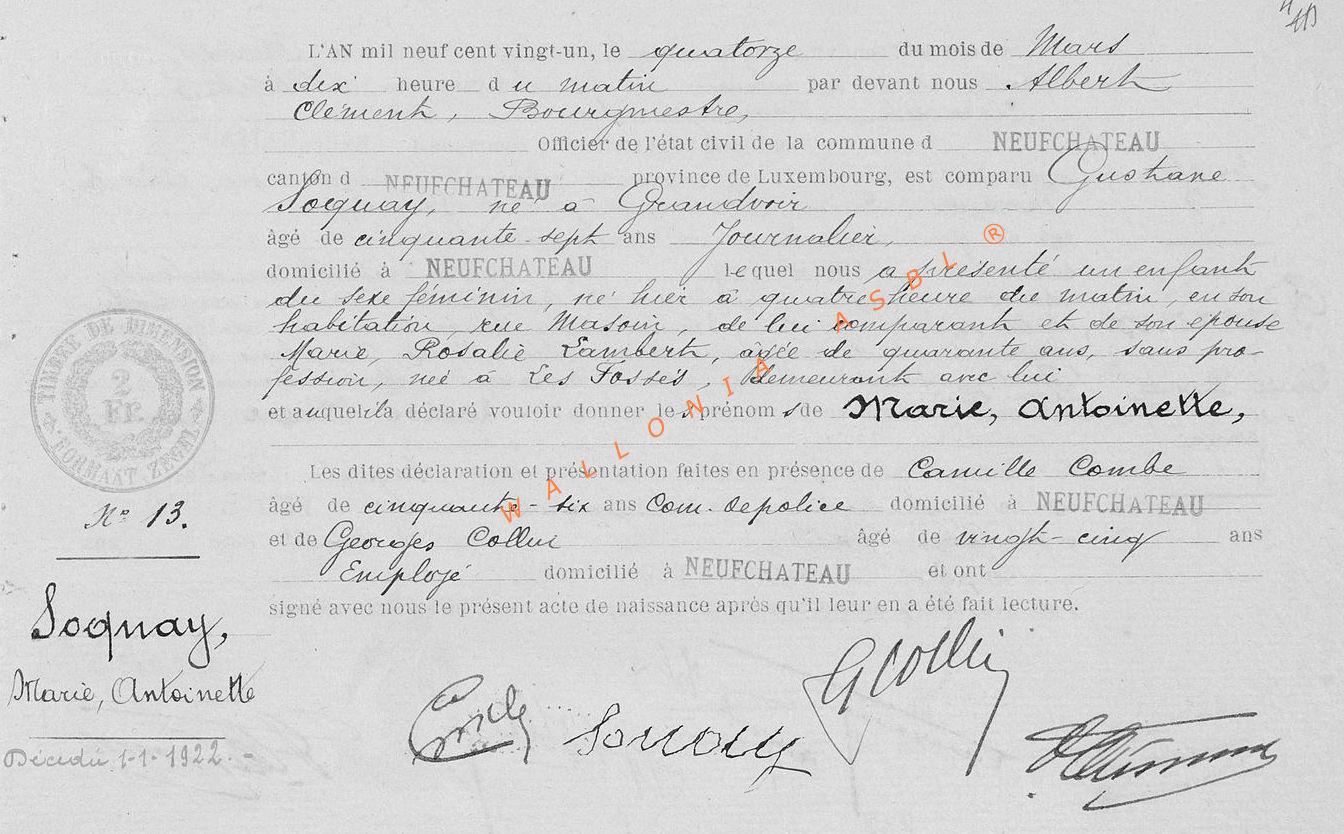 L'AN mil neuf cent vingt-un, le quatorze du mois de Mars
à dix heure du matin par devant nous Albert
Clément, Bourgmestre,
Officier de l'état civil de la commune d NEUFCHATEAU
canton d NEUFCHATEAU province de Luxembourg, est comparu Gustave
Socquay, né à Grandvoir
âgé de cinquante-sept ans Journalier,
domicilié à NEUFCHATEAU lequel nous a présenté un enfant
du sexe féminin, né hier à quatre heure du matin, en son
habitation, rue Masoin, de lui comparant et de son épouse
Marie, Rosalie Lambert, âgée de quarante ans, sans pro-
fession, née à Les Fossés, demeurant avec lui
et auquel il a déclaré vouloir donner les prénoms de Marie, Antoinette,
Les dites déclaration et présentation faites en présence de Camille Combe
âgé de cinquante-six ans Com. de police domicilié à NEUFCHATEAU
et de Georges Collin âgé de vingt-cinq ans
Employé domicilié à NEUFCHATEAU et ont
signé avec nous le présent acte de naissance après qu'il leur en a été fait lecture.
TIMBRE DE DIMENSION
2
FR.
FORMAAT ZEGEL
No 13.
Socquay,
Marie, Antoinette
Décédée 1-1-1922.-
G Collin
WALLONIA ASBL ®